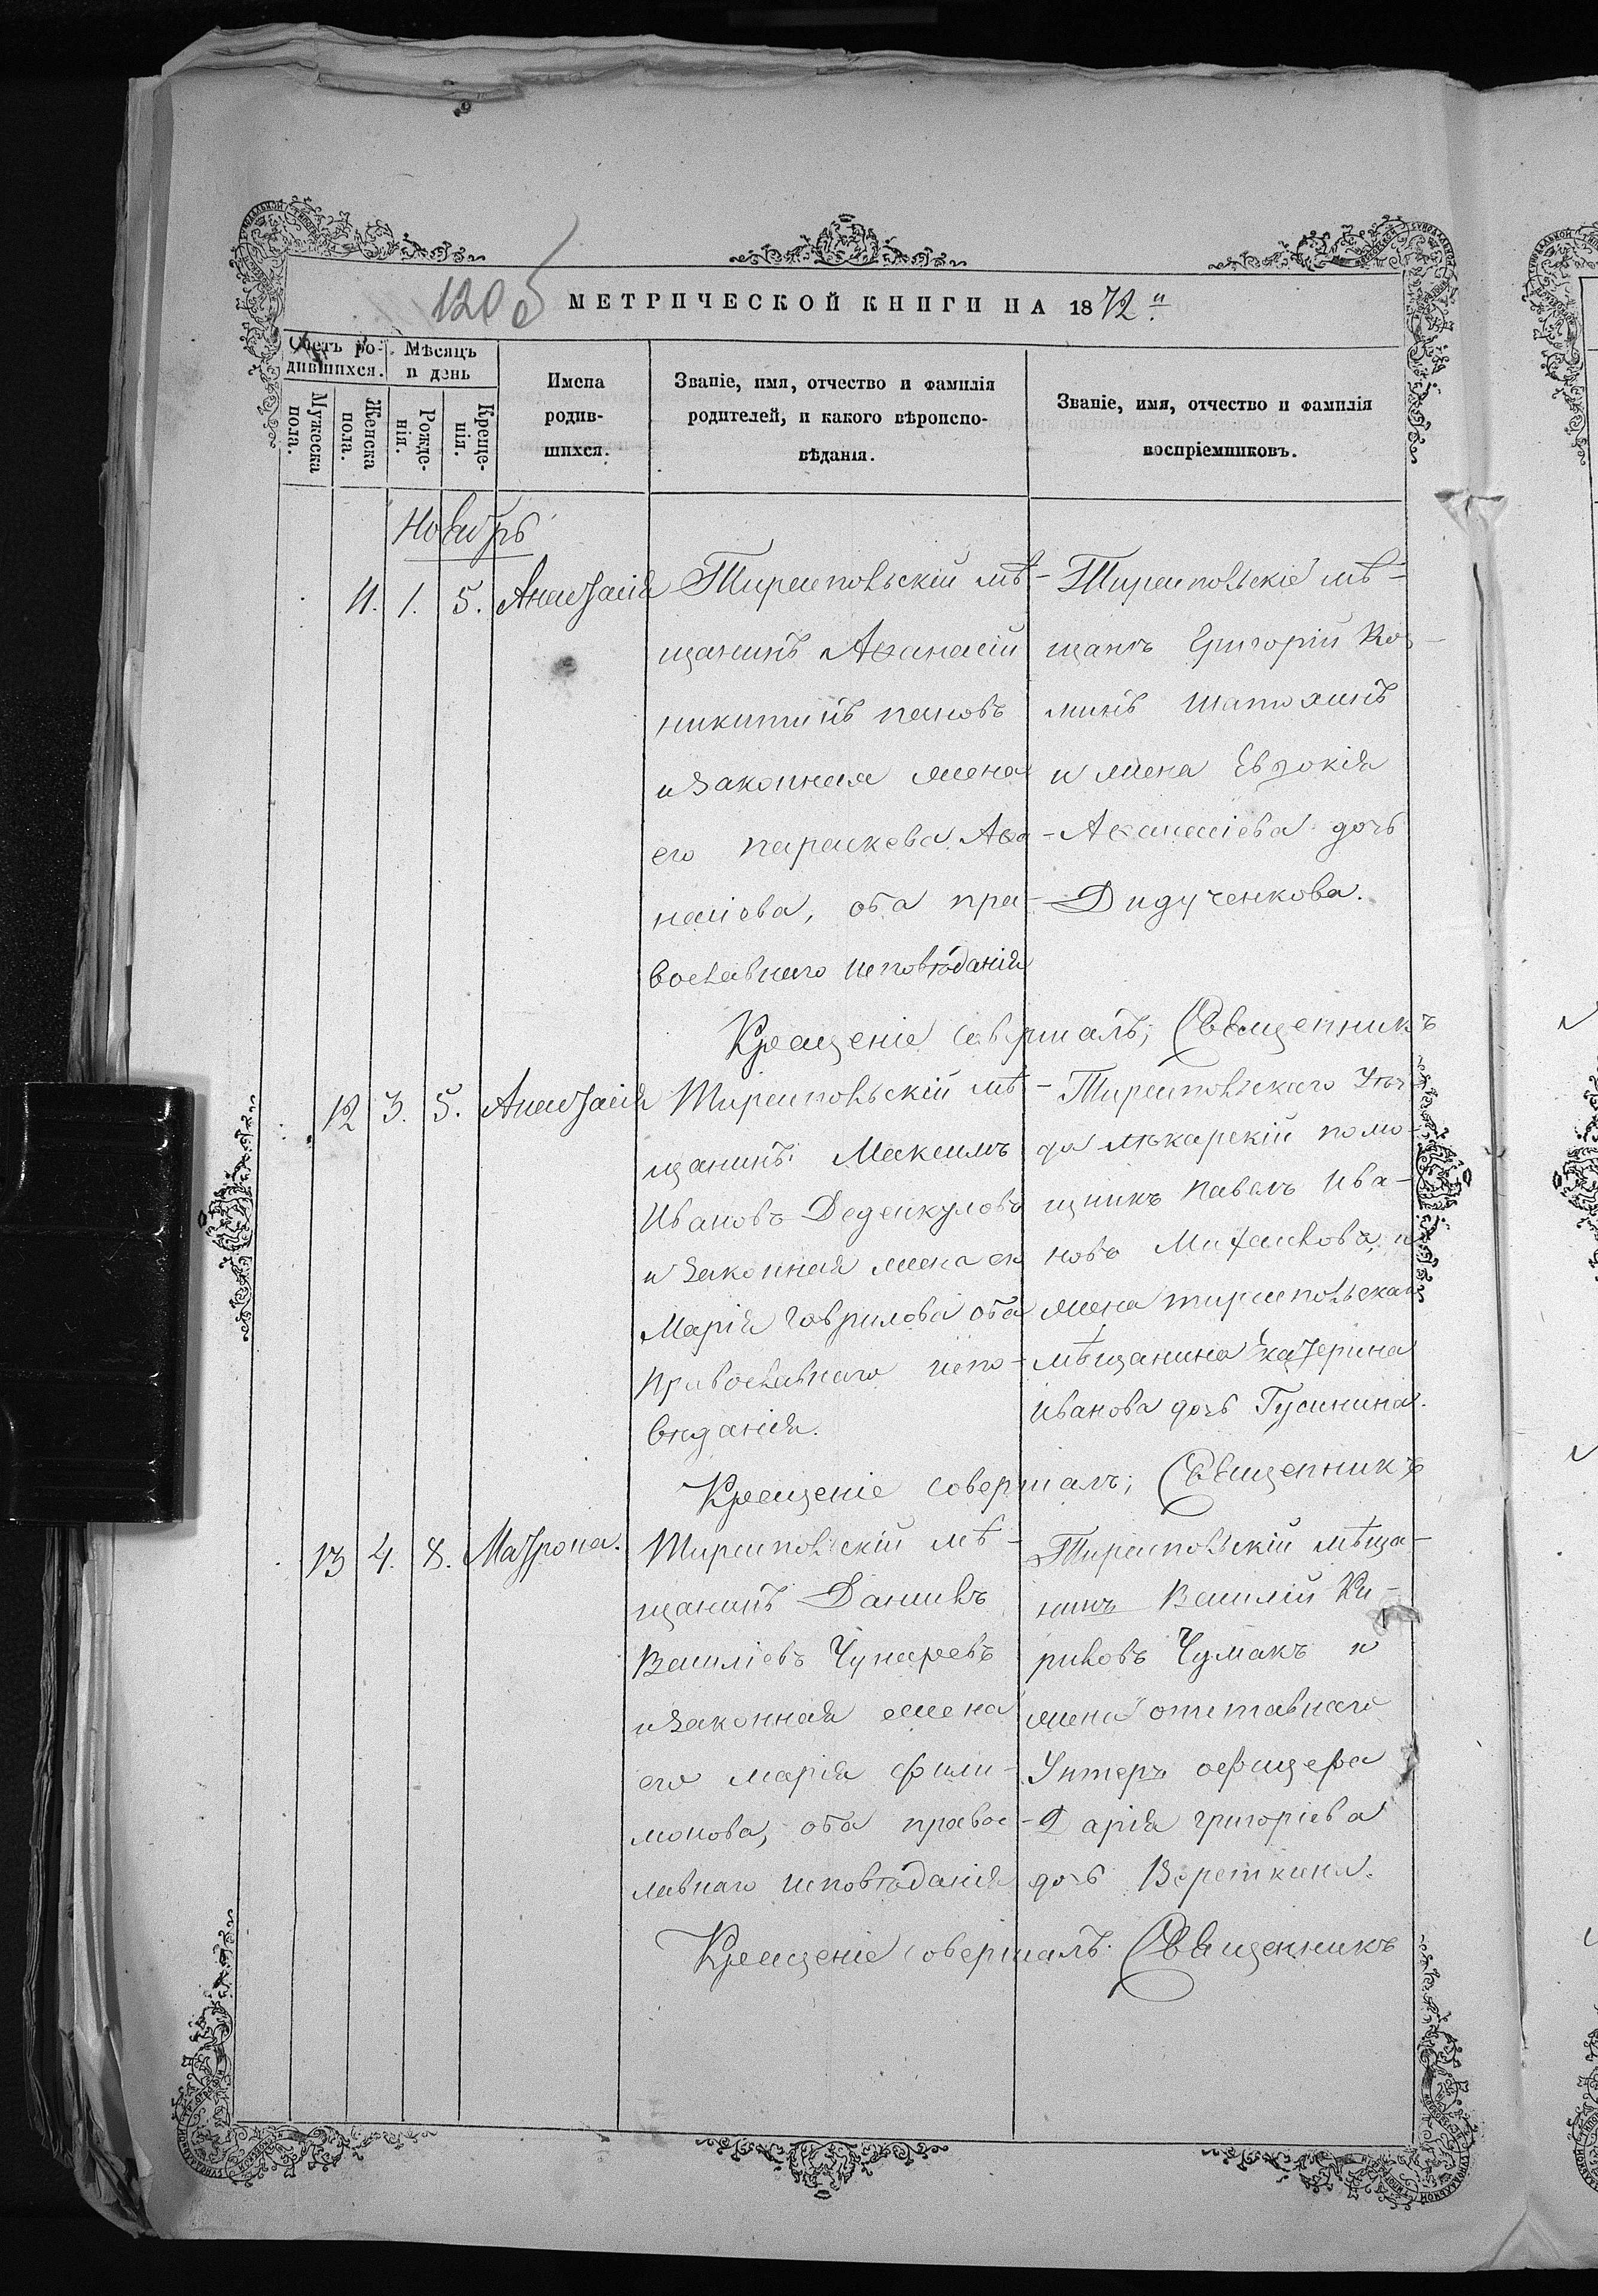 120б
МЕТРИЧЕСКОЙ КНИГИ НА 1872 "
Счетъ ро-
дившихся.
Мѣсяцъ
и день
Мужеска
пола.
Женска
пола.
Рожде-
нія.
Креще-
нія.
Имена
родив-
шихся.
Званіе, имя, отчество и фамилія
родителей, и какого вѣроиспо-
вѣданія.
Званіе, имя, отчество и фамилія
воспріемниковъ.
Ноябрь
11. 1. 5. Анастасія
Тираспольскій мѣ-
щанинъ Аѳанасій
никитинъ пановъ
и законная жена
его параскева Аѳа-
насіева, оба пра-
вославнаго исповѣданія
Тираспольскіе мѣ-
щанъ Григорій Коз-
минъ
и жена Евдокія
Аѳанасіева дочь
Дидученкова.
Крещеніе совершалъ; Священникъ
12 3. 5. Анастасія
Тираспольскій мѣ-
щанинъ Максимъ
Ивановъ
и законная жена его
Марія Гаврилова оба
православнаго испо-
виданія.
Тираспольскаго Уѣз-
да лѣкарскій помо-
щникъ павелъ Ива-
новъ и
жена тираспольскаго
мѣщанина Екатерина
Иванова дочь Гусинина.
Крещеніе совершалъ; Священникъ
13 4. 8. Матрона.
Тираспольскій мѣ-
щанинъ Даниилъ
Василіевъ
и законная жена
его марія Фили-
монова, оба правос-
лавнаго исповѣданія
Тираспольскій мѣща-
нинъ Василій Ки-
риловъ Чумакъ и
жена отставнаго
Унтеръ офицера
Дарія григоріева
дочь
Крещеніе совершалъ. Священникъ